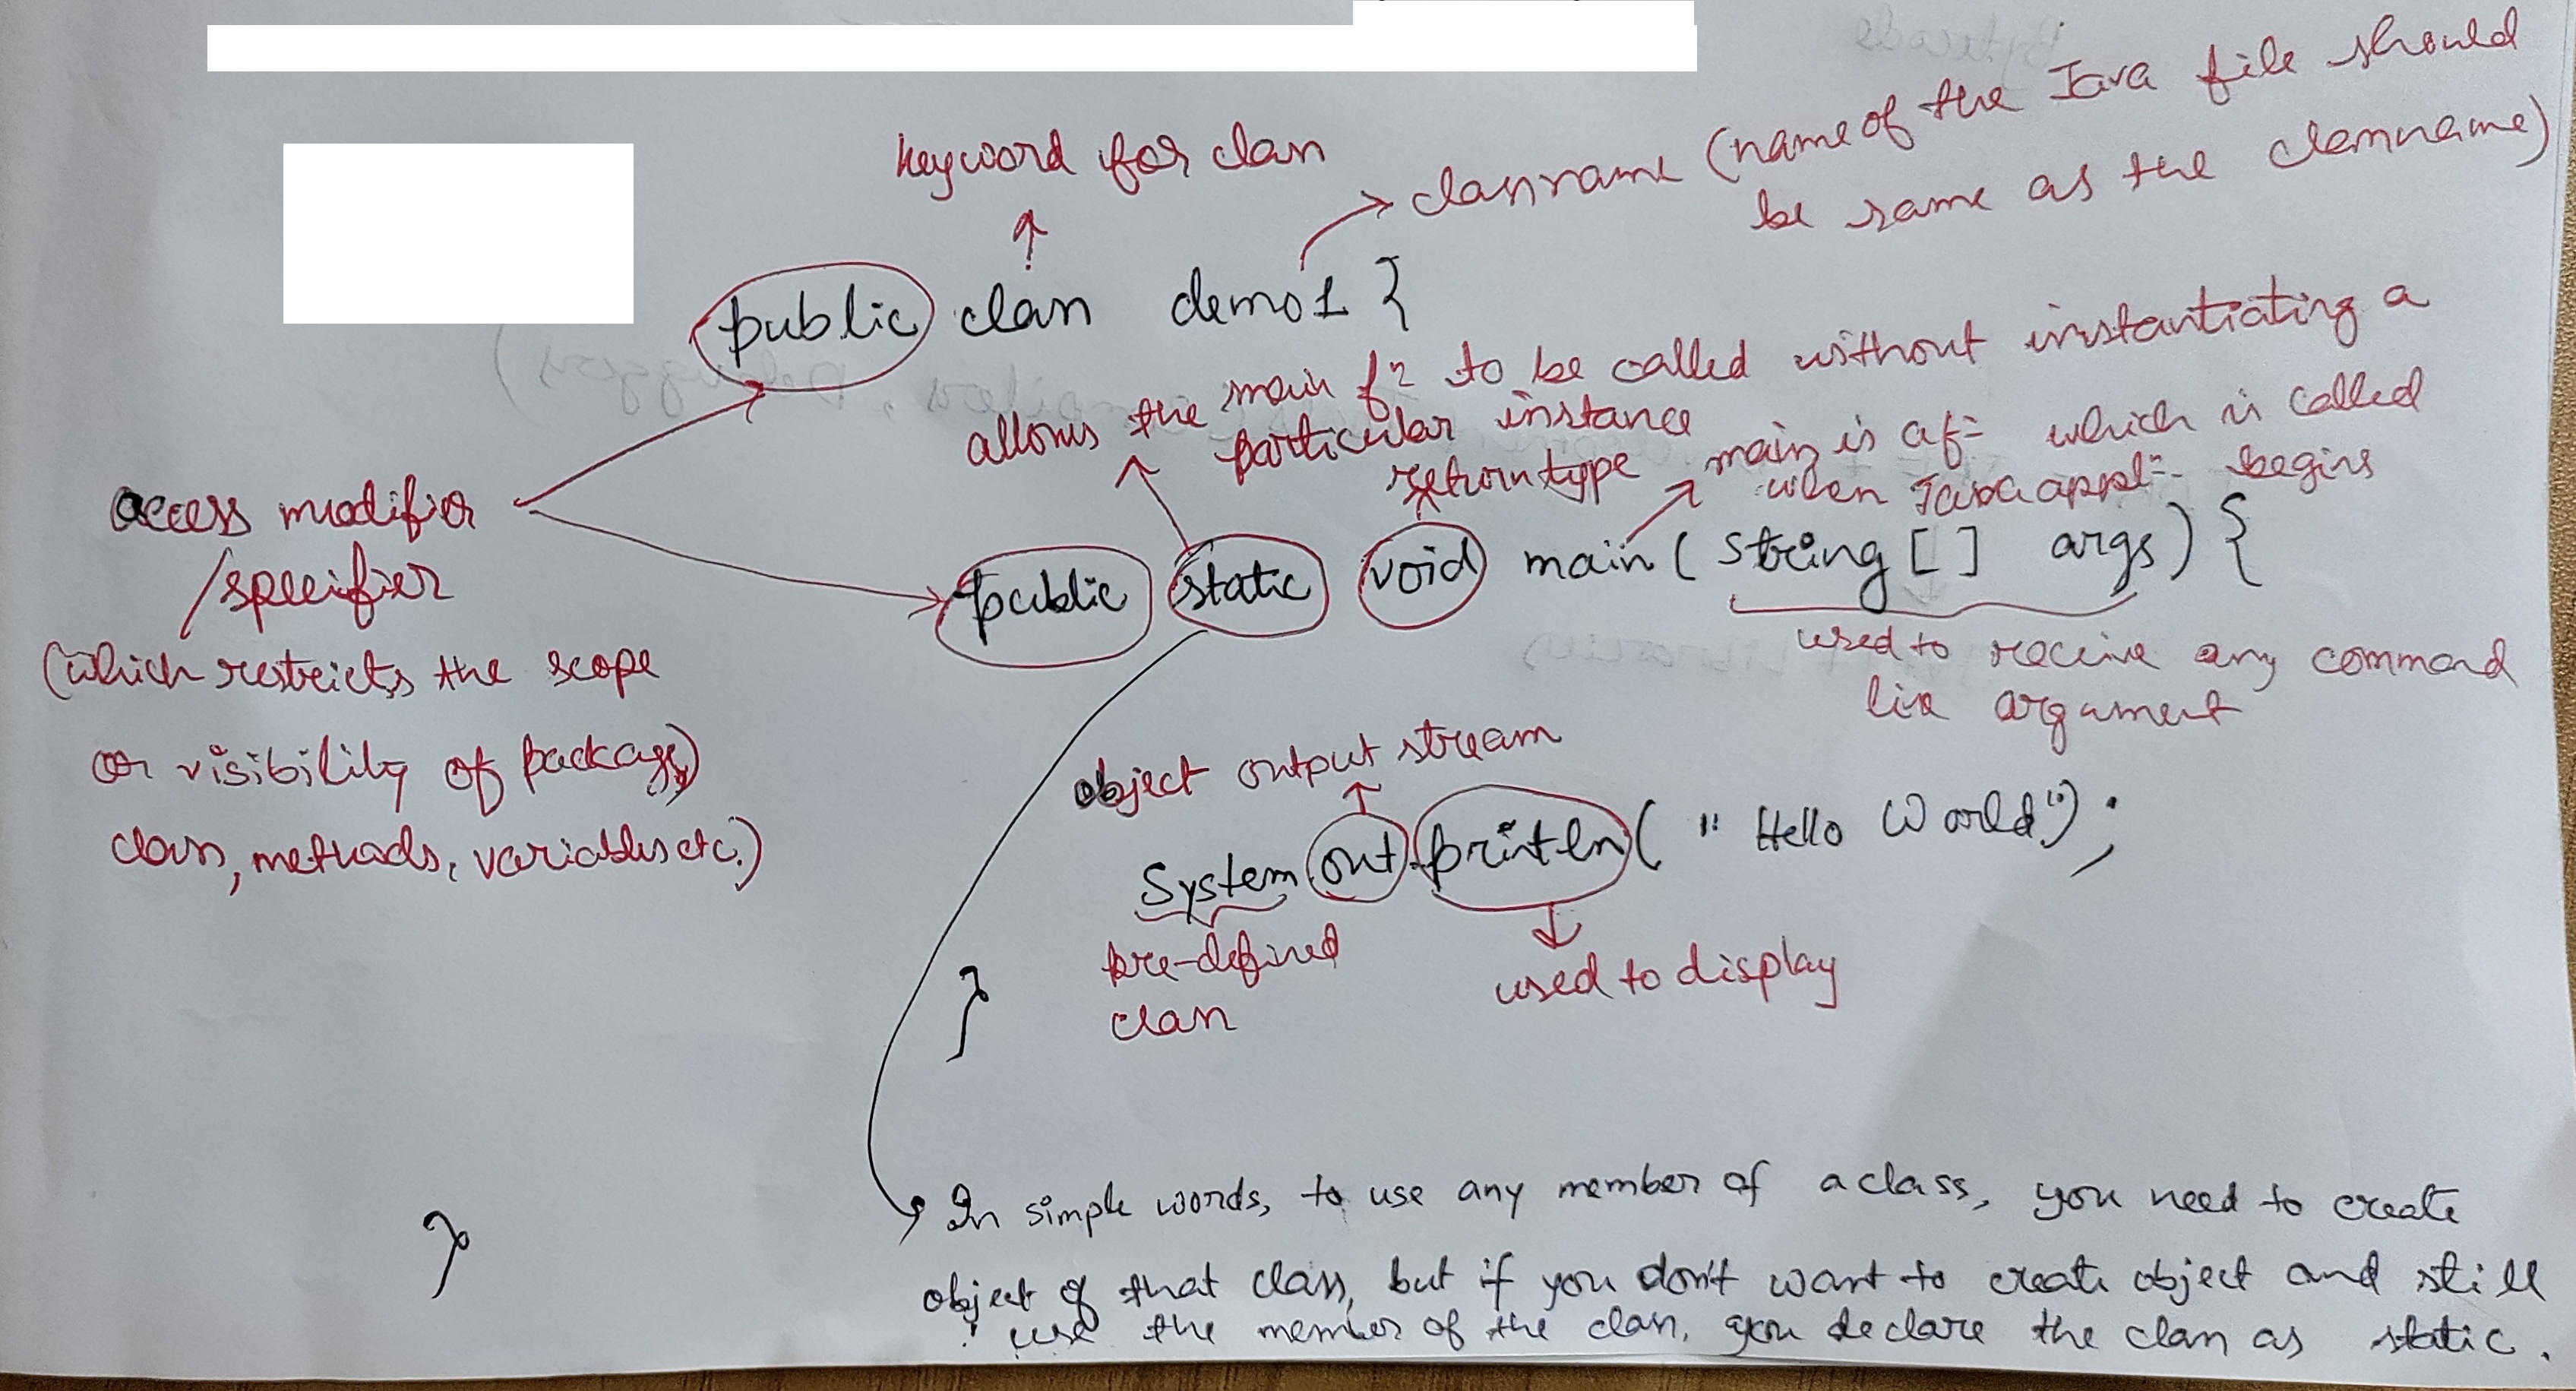 keyword for class
classname (name of the Java file should
be same as the classname)
public class demo1 {
allows the main fn to be called without instantiating a
particular instance
return type
main is a fn which is called
when Java appln begins
access modifier
/specifier
(which restricts the scope
or visibility of packages,
class, methods, variables etc.)
public static void main( string [ ] args) {
used to receive any command
line argument
object output stream
System.out.println( "Hello World");
pre-defined
class
used to display
}
}
In simple words, to use any member of a class, you need to create
object of that class, but if you don't want to create object and still
use the member of the class, you declare the class as static.